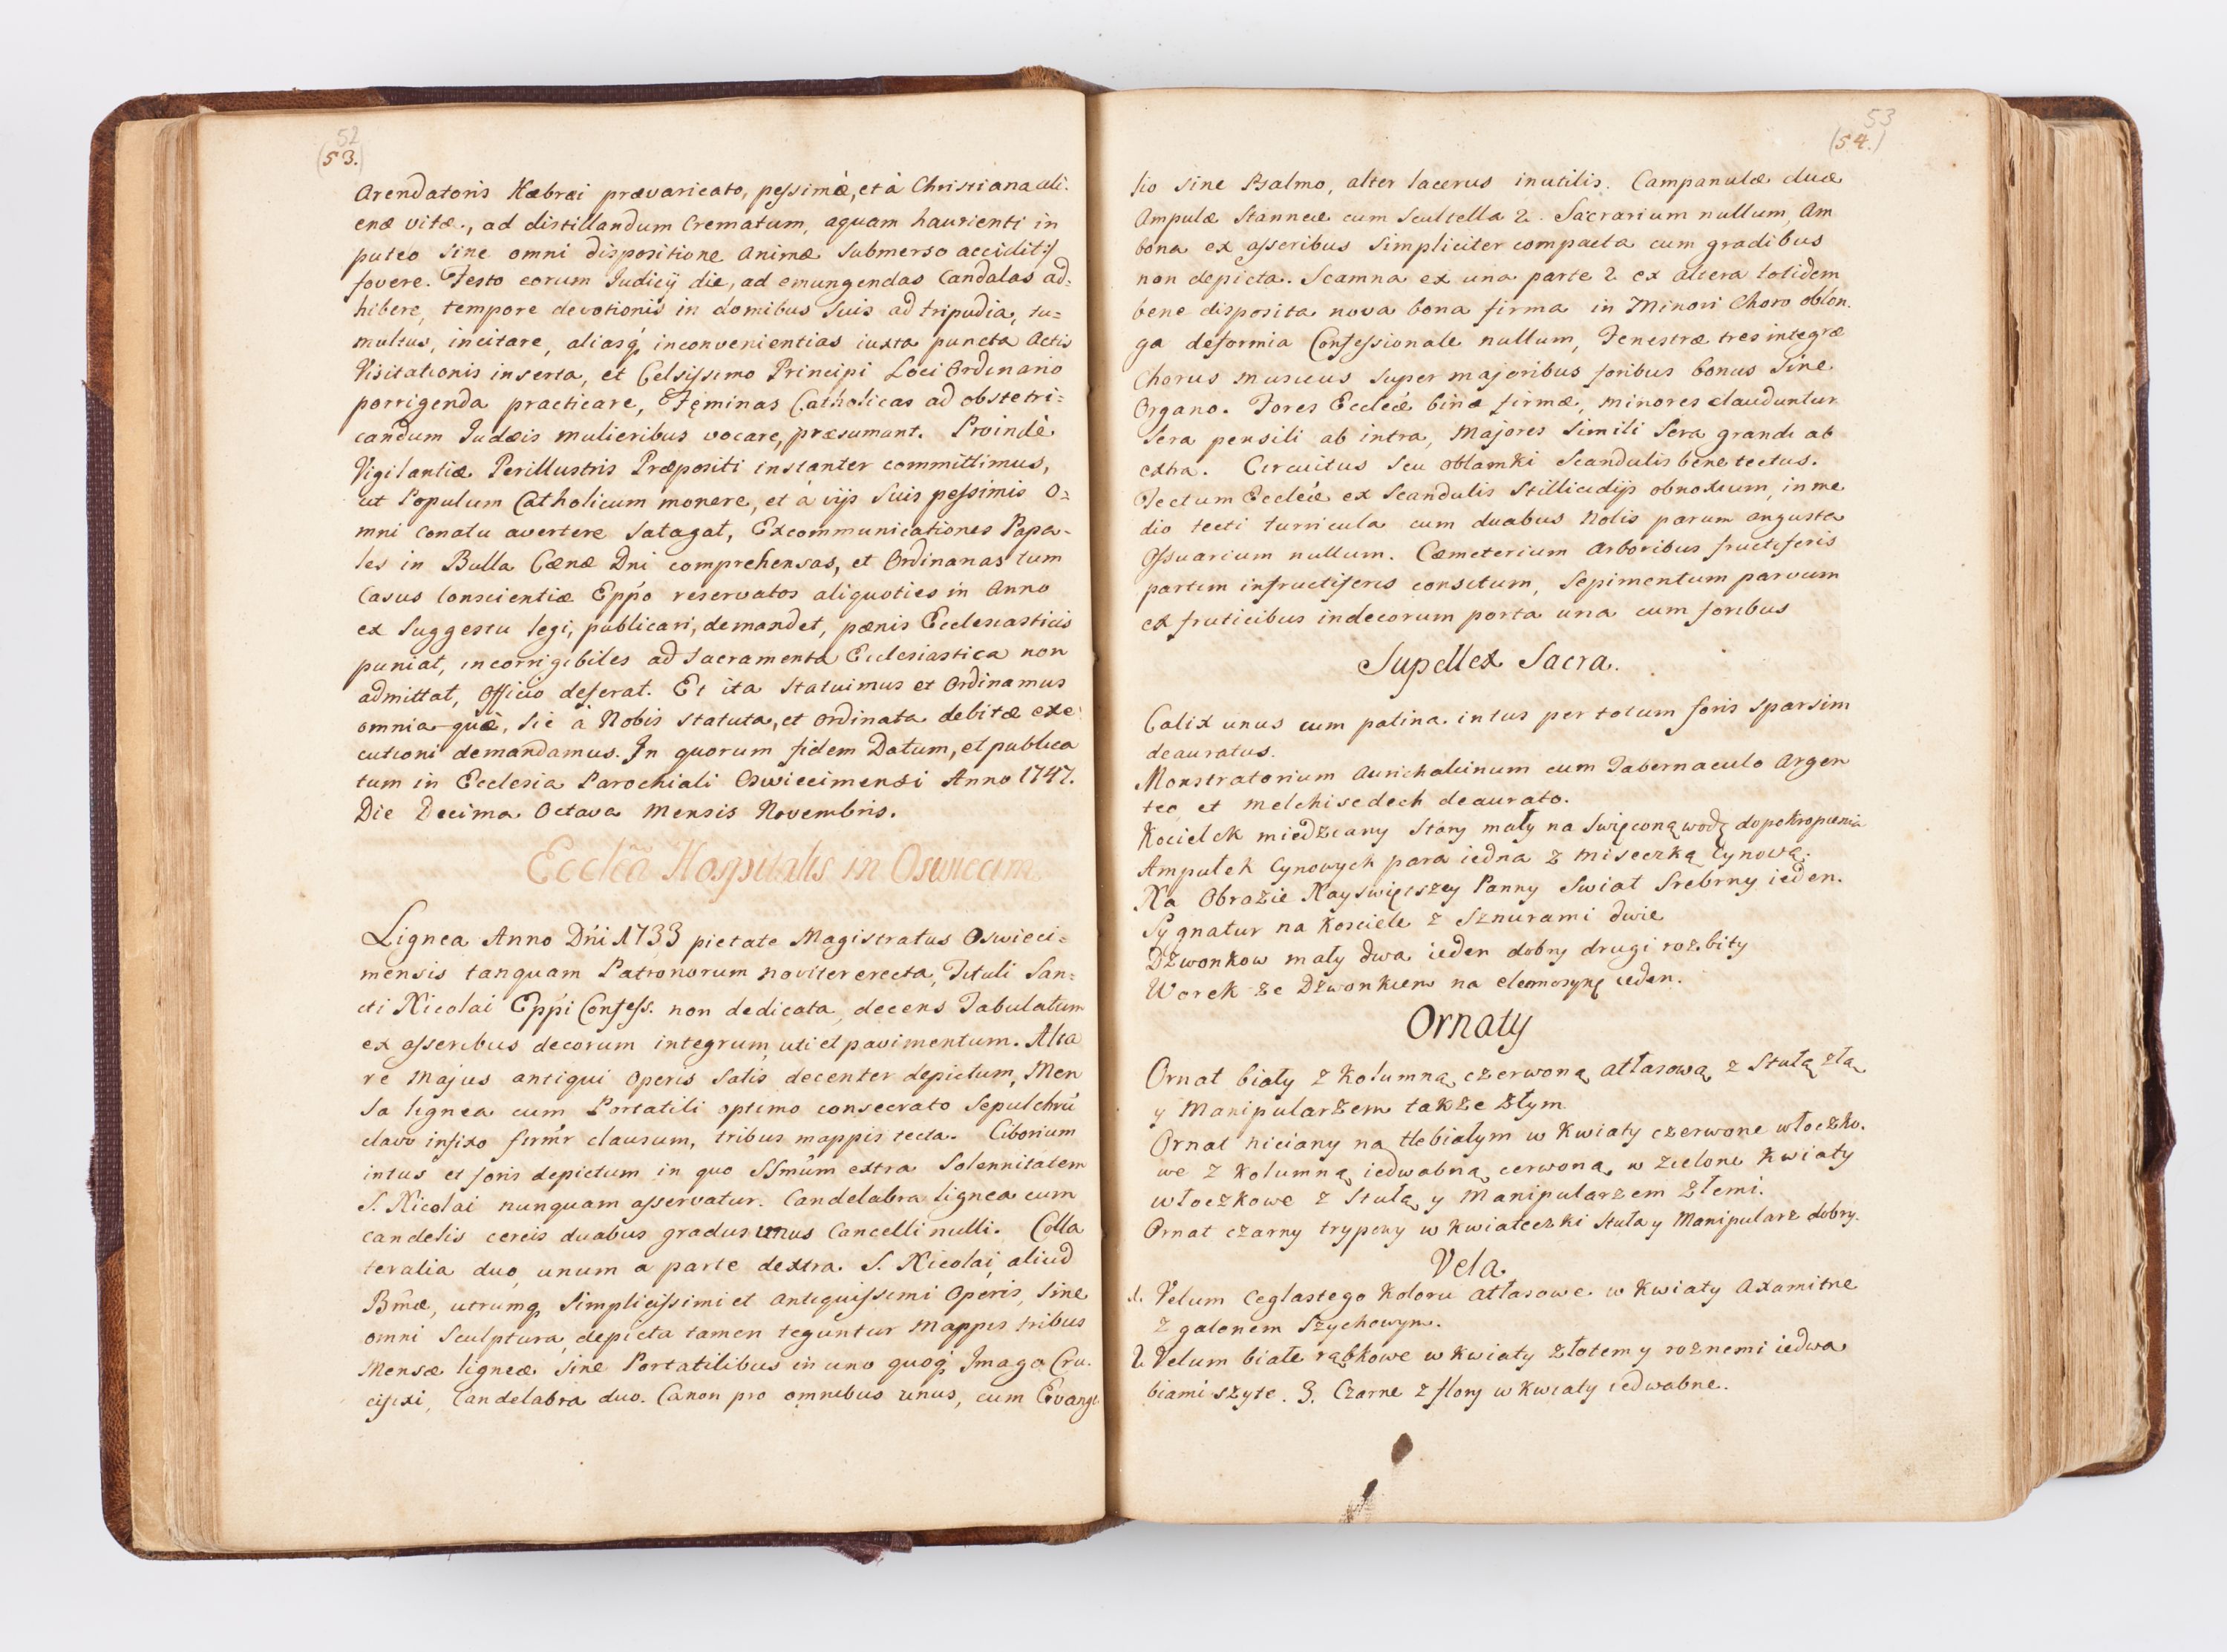 52
(53.)
Arendatoris Hæbræi prævaricato, pessimè, et à Christiana ali:
enæ vitæ, ad distillandum Crematum, aquam haurienti in
puteo sine omni dispositione animæ submerso accidit
fovere. Festo eorum Iudicij die, ad emungendas Candalas ad:
hibere, tempore devotionis in domibus suis ad tripudia, tu=
multus, incitare, aliasq́ inconvenientias iuxta puncta Actis
Visitationis inserta, et Celsissimo Principi Loci Ordinario
porrigenda practicare, Fęminas Catholicas ad obstetri=
candum Iudæis mulieribus vocare, præsumant. Proindè
Vigilantiæ Perillustris Præpositi instanter committimus,
ut Populum Catholicum monere, et á vijs suis pessimis o=
mni conatu avertere satagat, Excommunicationes Papa-
les in Bulla Cœnæ Dni comprehensas, et Ordinanas tum
Casus Conscientiæ Epṕo reservatos aliquoties in Anno
ex suggestu legi, publicari, demandet, pœnis Ecclesiasticis
puniat, incorrigibiles ad Sacramenta Ecclesiastica non
admittat, Officio deferat. Et ita statuimus et Ordinamus
omnia quæ, sic à Nobis statuta, et ordinata debitæ exe:
cutioni demandamus. In quorum fidem Datum, et publica
tum in Ecclesia Parochiali Oswiecimensi Anno 1747.
Die Decima Octava Mensis Novembris.
Eccleā Hospitalis in Oswiecim
Lignea Anno Dńi 1733 pietate Magistratus Oswieci=
mensis tanquam Patronorum noviter erecta, Tituli San=
cti Nicolai Eppi Confess. non dedicata, decens Tabulatum
ex asseribus decorum integrum, uti et pavimentum. Alta
re Majus antiqui Operis satis decenter depictum, Men
sa lignea cum Portatili optimo consecrato sepulchrū
clavo infixo firḿr clausum, tribus mappis tecta. Ciborium
intus et foris depictum in quo SSmūm extra Solennitatem
S. Nicolai nunquam asservatur. Candelabra lignea cum
candelis cereis duabus gradus unus Cancelli nulli. Colla
teralia duo, unum a parte dextra S. Nicolai, aliud
Bm̃æ, utrumq simplicissimi et antiquissimi Operis, sine
omni Sculptura, depicta tamen teguntur mappis tribus
Mensæ ligneæ sine Portatilibus in uno quoq́ Imago Cru.
cifixi, Candelabra duo. Canon pro omnibus unus, cum Evange
53
(54.)
lio sine Psalmo, alter lacerus inutilis. Campanulæ duæ
Ampulæ Stanneæ cum Scultella 2. Sacrarium nullum, Am
bona ex asseribus simpliciter compacta cum gradibus
non depicta. Scamna ex una parte 2 ex altera totidem
bene disposita nova bona firma in Minori Choro oblon.
ga deformia Confessionale nullum, Fenestræ tres integræ
Chorus musicus super majoribus foribus bonus sine
Organo. Fores Eccleiæ binæ firmæ, minores clauduntur
sera pensili ab intra, Majores simili sera grandi ab
extra. Circuitus seu oblamki Scandulis bene tectus.
Tectum Eccleiæ ex Scandulis Stillicidijs obnoxium, in me
dio tecti turricula cum duabus Nolis parum angusta
Ossuarium nullum. Cæmeterium Arboribus fructiferis
partim infructiferis consitum, Sepimentum parvum
ex fruticibus indecorum porta una cum foribus
Supellex Sacra.
Calix unus cum patina intus per totum foris sparsim
deauratus.
Monstratorium Aurichalcinum cum Tabernaculo Argen
teo et Melchisedech deaurato.
Kocielek miedziany stary mały na święconą wodę do pokropienia
Ampułek Cynowych para iedna z miseczką Cynową.
Na Obrazie Nayświętszey Panny Swiat Srebrny ieden.
Sygnatur na kosciele z Sznurami dwie
Dzwonkow mały dwa ieden dobry drugi rozbity
Worek ze Dzwonkiem na eleemosynę ieden.
Ornaty
Ornat biały z kolumną czerwoną atłasową z Stułą złą,
y Manipularzem także złym
Ornat niciany na tle białym w kwiaty czerwone włoczko.
we z kolumną iedwabną cerwoną w zielone kwiaty
włoczkowe z Stułą y Manipularzem złemi.
Ornat czarny trypowy w kwiateczki Stuła y Manipularz dobry.
Vela
1. Velum Ceglastego koloru atłasowe w kwiaty Axamitne
z galonem Szychowym.
2. Velum białe rąbkowe w kwiaty złotem y roznemi iedwa
biami szyte. 3. Czarne z flory w kwiaty iedwabne.